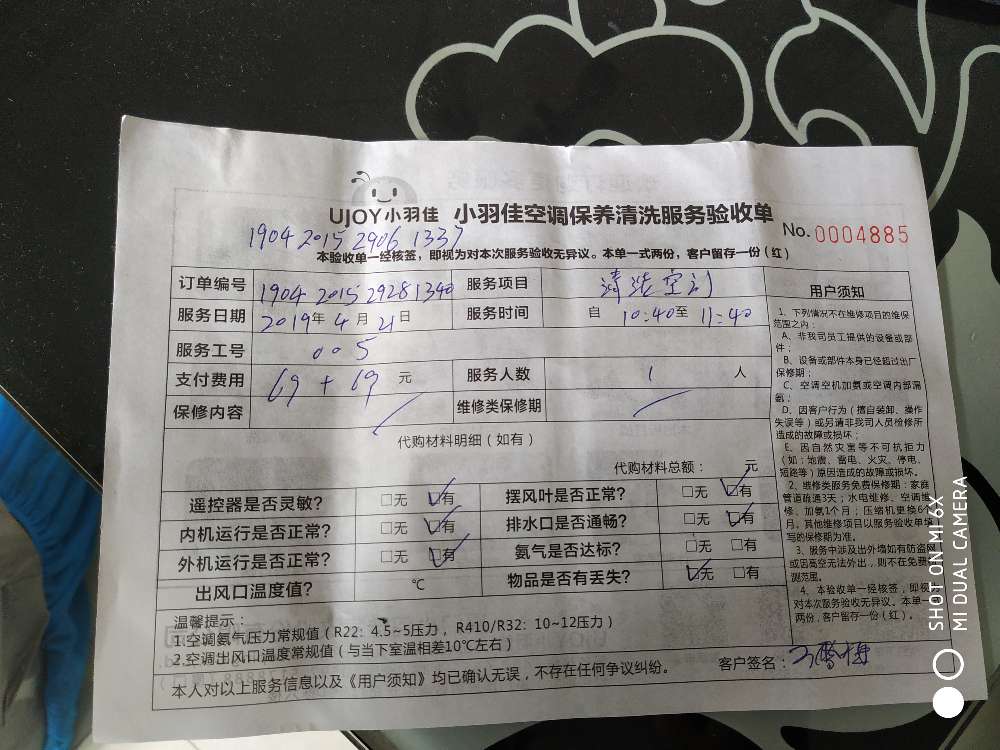 UJOY小羽佳 小羽佳空调保养清洗服务验收单
No. 0004885
1904 2015 2906 1337
本验收单一经核签，即视为对本次服务验收无异议。本单一式两份，客户留存一份（红）
订单编号 1904 2015 29281340 服务项目 清洗空调
服务日期 2019年4月21日 服务时间 自 10:40至 11:40
服务工号 005
支付费用 69 + 69 元 服务人数 1 人
保修内容 维修类保修期
代购材料明细（如有）
代购材料总额： 元
遥控器是否灵敏？ □无 ☑有 摆风叶是否正常？ □无 ☑有
内机运行是否正常？ □无 ☑有 排水口是否通畅？ □无 ☑有
外机运行是否正常？ □无 ☑有 氨气是否达标？ □无 □有
出风口温度值？ ℃ 物品是否有丢失？ ☑无 □有
温馨提示：
1.空调氨气压力常规值（R22：4.5~5压力，R410/R32：10~12压力）
2.空调出风口温度常规值（与当下室温相差10℃左右）
客户签名：
本人对以上服务信息以及《用户须知》均已确认无误，不存在任何争议纠纷。
用户须知
1、下列情况不在维修项目的维保
范围之内：
A、非我司员工提供的设备或部
件；
B、设备或部件本身已经超过出厂
保修期；
C、空调空机加氨或空调内部漏
氨；
D、因客户行为（擅自装卸、操作
失误等）或另请非我司人员检修所
造成的故障或损坏；
E、因自然灾害等不可抗拒力
（如：地震、雷电、火灾、停电、
短路等）原因造成的故障或损坏。
2、维修类服务免费保修期：家庭
管道疏通3天；水电维修、空调维
修、加氨1个月；压缩机更换6个
月。其他维修项目以服务验收单填
写的保修期为准。
3、服务中涉及出外墙如有防盗网
或因高空无法外出，则不在免费
测范围。
4、本验收单一经核签，即视为
对本次服务验收无异议。本单一
两份，客户留存一份（红）。
SHOT ON MI 6X
MI DUAL CAMERA